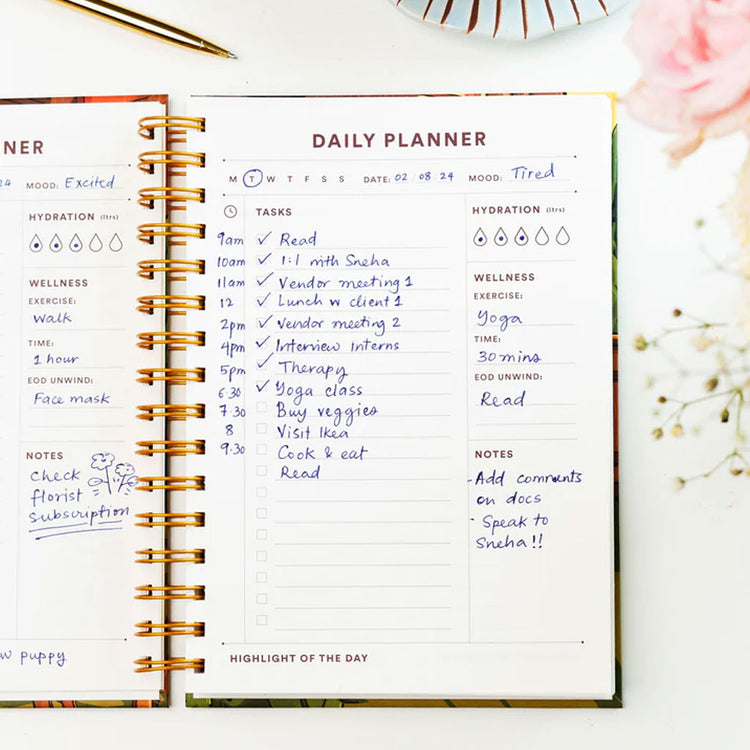 NNER
24 MOOD: Excited
HYDRATION (ltrs)
WELLNESS
EXERCISE:
Walk
TIME:
1 hour
EOD UNWIND:
Face mask
NOTES
check
florist
subscription
puppy
DAILY PLANNER
M T W T F S S DATE: 02/08/24 MOOD: Tired
TASKS
9am Read
10am 1:1 with Sneha
11am Vendor meeting 1
12 Lunch w client 1
2pm Vendor meeting 2
4pm Interview Interns
5pm Therapy
6.30 Yoga class
7.30 Buy veggies
8 Visit Ikea
9.30 Cook & eat
Read
HYDRATION (ltrs)
WELLNESS
EXERCISE:
Yoga
TIME:
30 mins
EOD UNWIND:
Read
NOTES
- Add comments
on docs
- Speak to
Sneha!!
HIGHLIGHT OF THE DAY